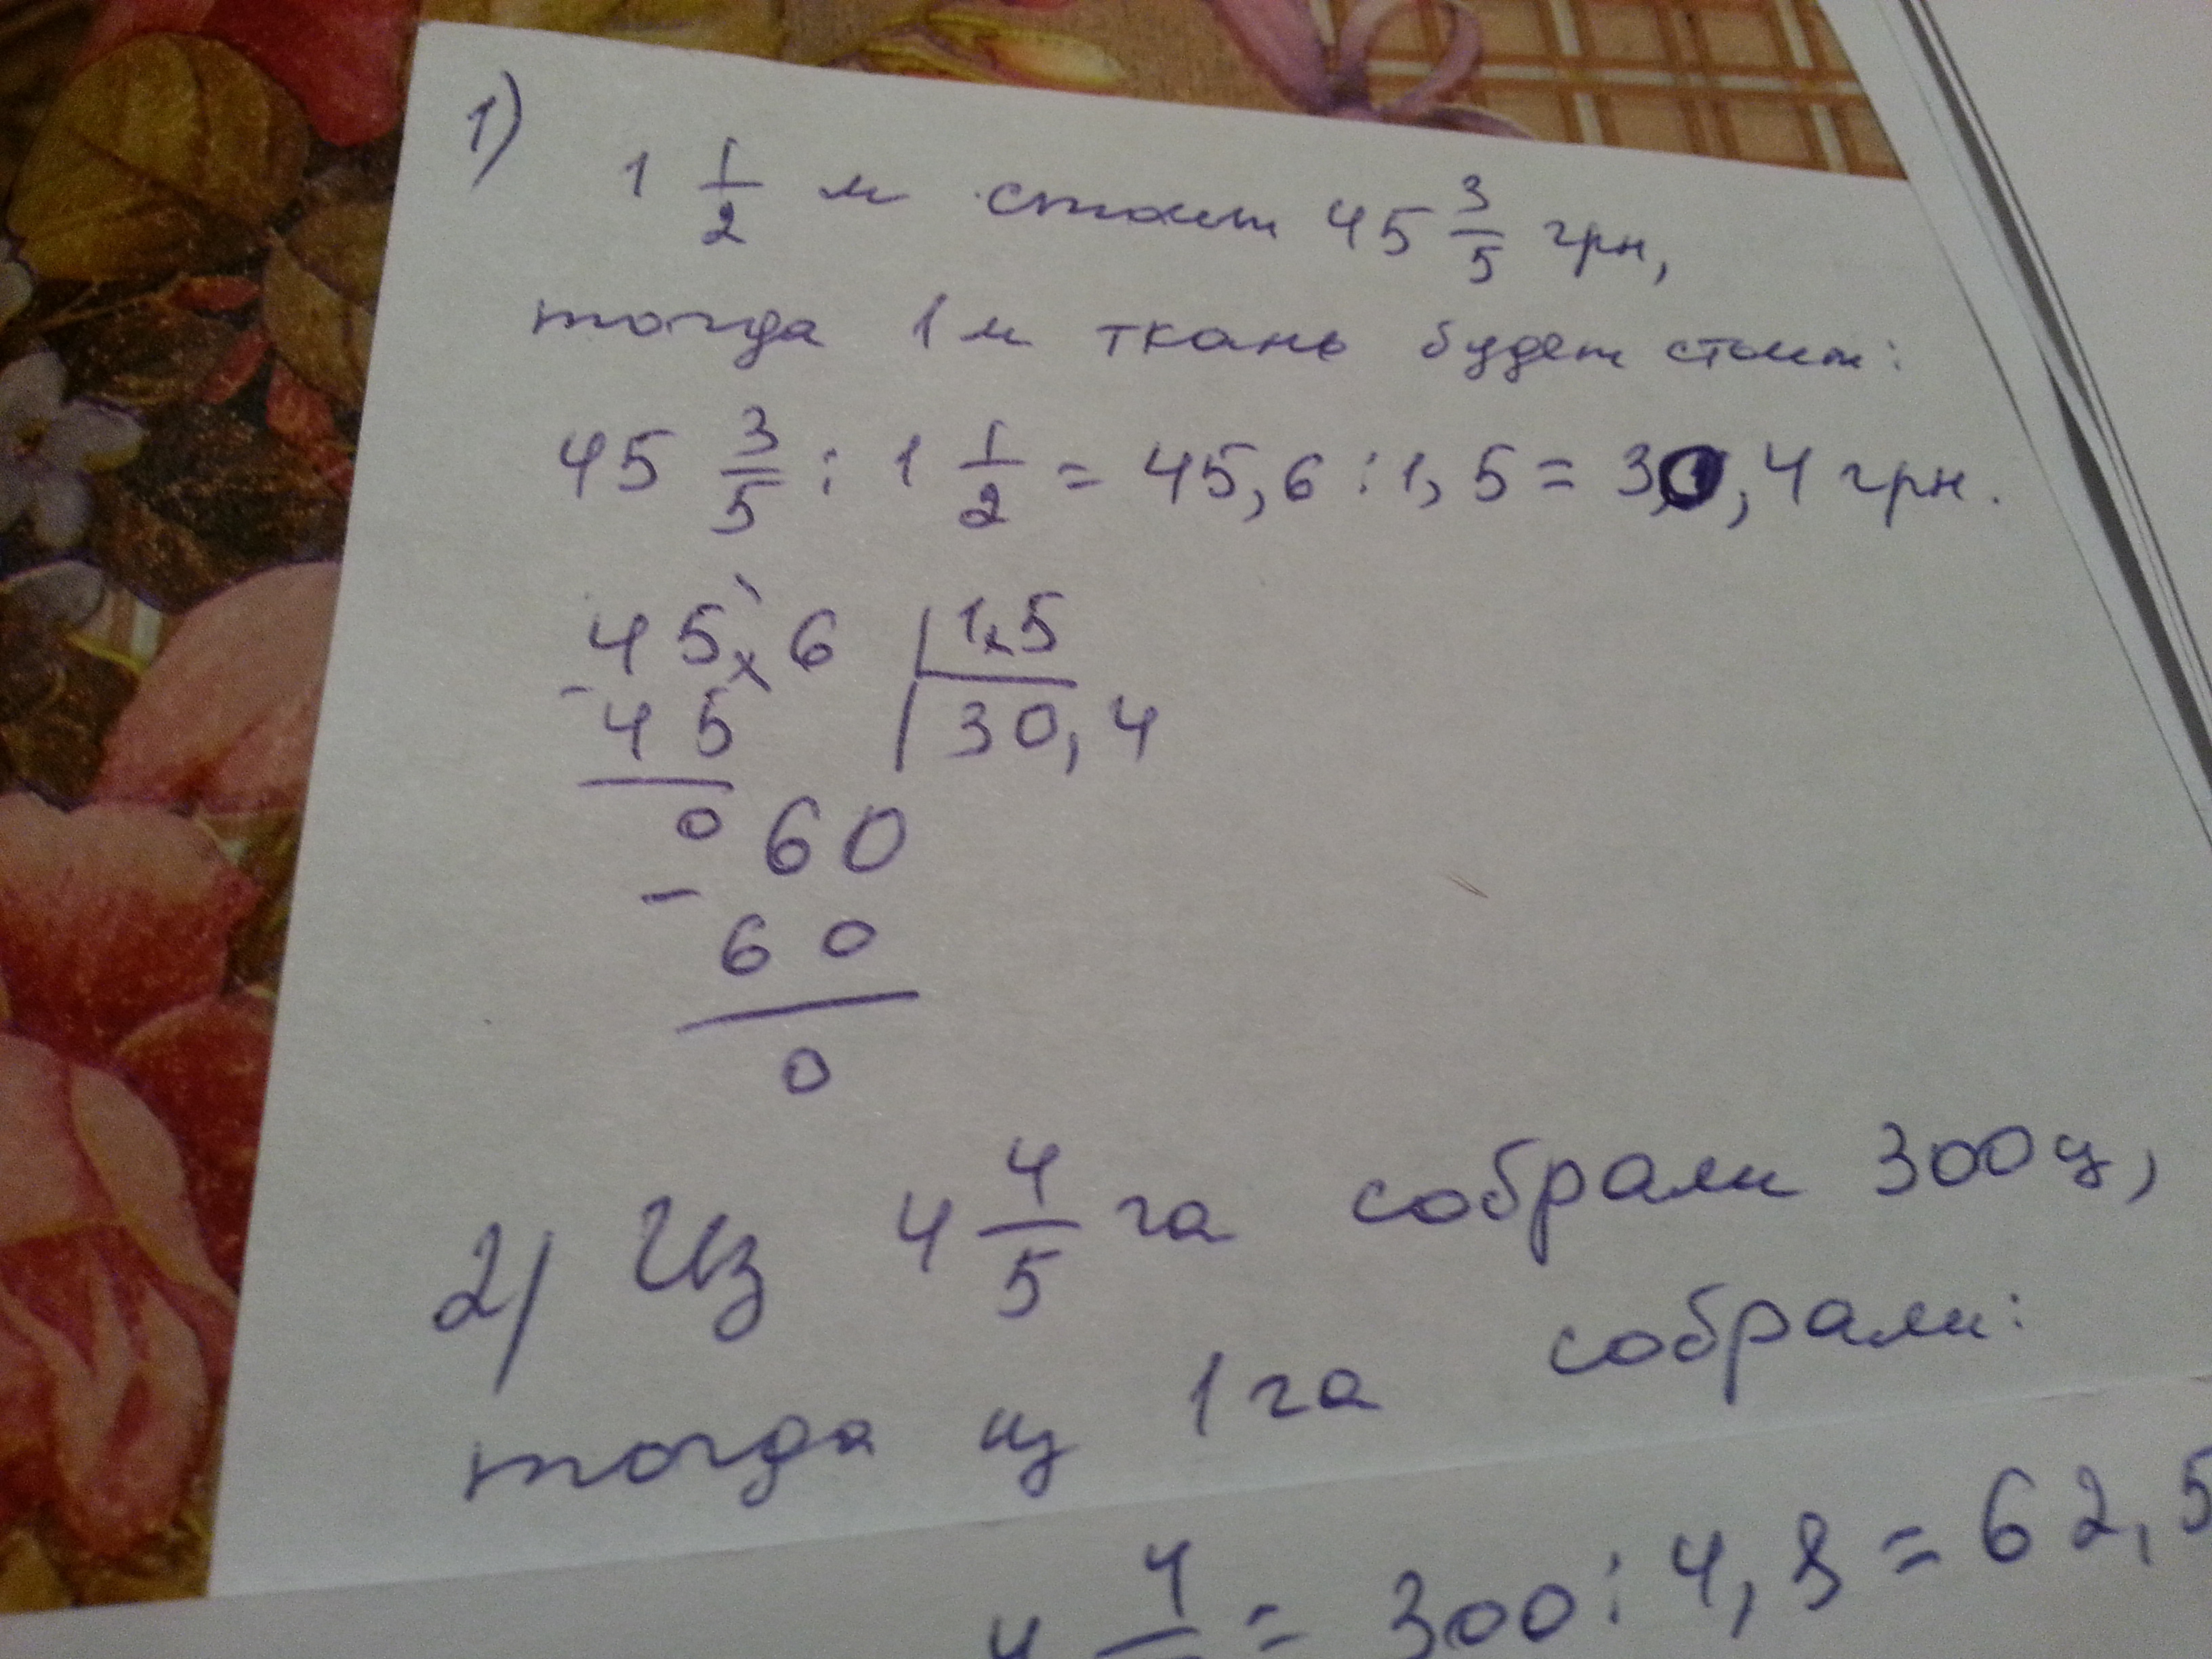 1)
1 1/2 м стоит 45 3/5 грн,
тогда 1 м ткань будет стоит:
45 3/5 : 1 1/2 = 45,6 : 1,5 = 30,4 грн.
45,6 | 1,5
- 45 | 30,4
0 60
- 60
0
2) Из 4 4/5 га собрали 300 ц,
тогда из 1 га собрали:
4 4 = 300 : 4,8 = 62,5